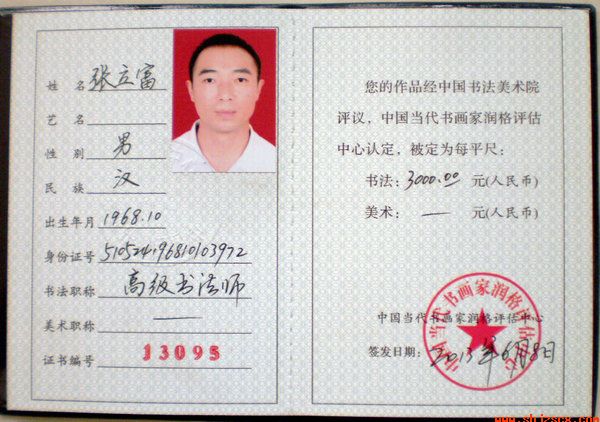 姓 名 张立富
艺 名
性 别 男
民 族 汉
出生年月 1968.10
身份证号 510524196810103972
书法职称 高级书法师
美术职称 —
证书编号 13095
您的作品经中国书法美术院
评议，中国当代书画家润格评估
中心认定，被定为每平尺：
书法：3000.00 元(人民币)
美术： — 元(人民币)
中国当代书画家润格评估中心
中国当代书画家润格评估中心
签发日期：2013年6月8日